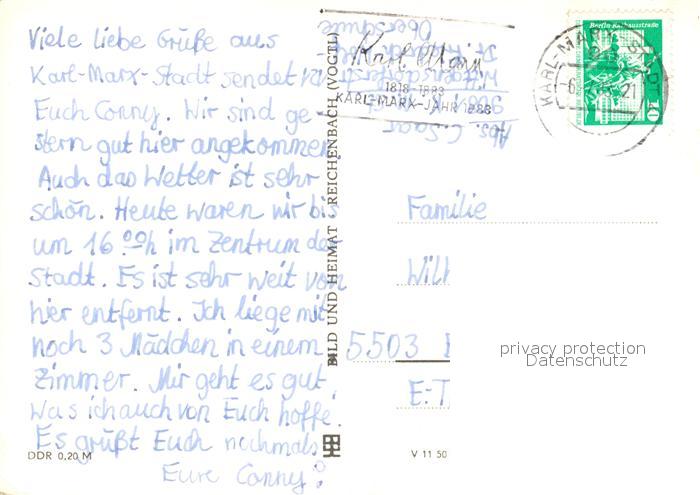 Viele liebe Grüße aus
Karl-Marx-Stadt sendet
Euch Conny. Wir sind ge-
stern gut hier angekommen.
Auch das Wetter ist sehr
schön. Heute waren wir bis
um 16 00h im Zentrum der
Stadt. Es ist sehr weit von
hier entfernt. Ich liege mit
noch 3 Mädchen in einem
Zimmer. Mir geht es gut,
was ich auch von Euch hoffe.
Es grüßt Euch nochmals
Eure Conny
DDR 0,20 M
BILD UND HEIMAT REICHENBACH (VOGTL)
V 11 50
Abs. C.
Oberschule
Karl Marx
1818-1883
KARL-MARX-JAHR 1983
KARL-MARX-STADT
Berlin, Rathausstraße
10
Familie
Will
5503
E.-T
privacy protection
Datenschutz